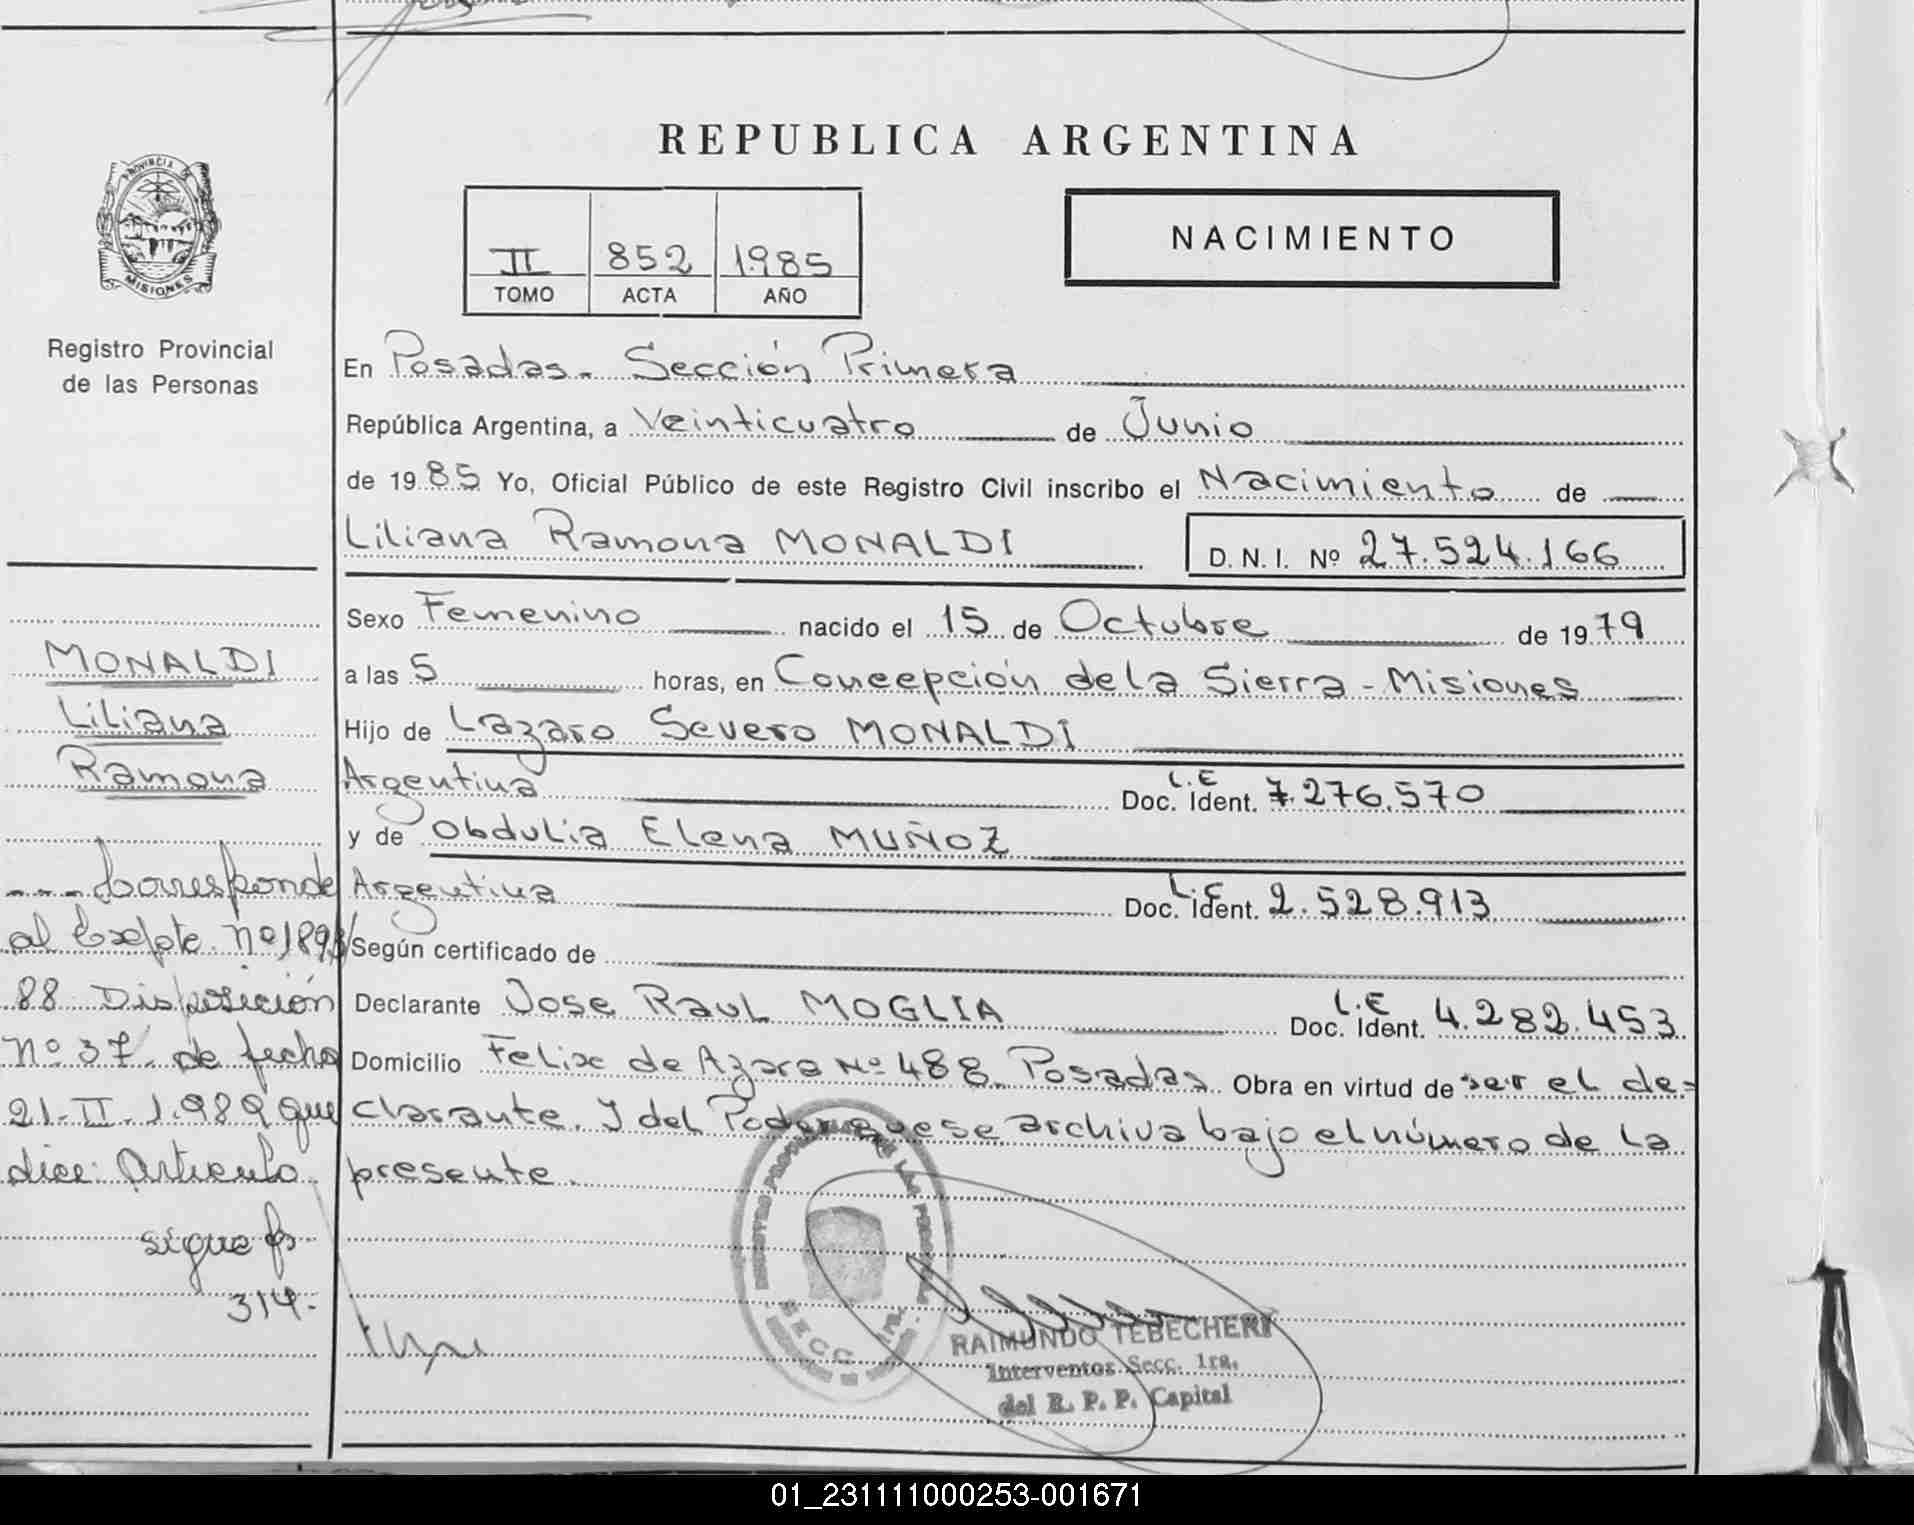 REPUBLICA ARGENTINA
PROVINCIA DE
MISIONES
Registro Provincial
de las Personas
II 852 1985
TOMO ACTA AÑO
NACIMIENTO
En Posadas. Sección Primera
República Argentina, a Veinticuatro de Junio
de 1985 Yo, Oficial Público de este Registro Civil inscribo el Nacimiento de
Liliana Ramona MONALDI D. N. I. Nº 27.524.166
Sexo Femenino nacido el 15 de Octubre de 1979
a las 5 horas, en Concepción de la Sierra - Misiones
Hijo de Lazaro Severo MONALDI
Argentina Doc. Ident. L.E 7.276.570
y de Obdulia Elena MUÑOZ
Argentina Doc. Ident. L.C 2.528.913
Según certificado de
Declarante Jose Raul MOGLIA Doc. Ident. L.E 4.282.453
Domicilio Felix de Azara Nº 488. Posadas Obra en virtud de ser el de=
clarante. Y del Poder que se archiva bajo el número de la
presente.
MONALDI
Liliana
Ramona
--- Corresponde
al Expte. Nº 1893/
88 Disposición
Nº 37 de fecha
21-II-1.989 que
dice: Articulo
sigue fs
314-
SECC. 1RA.
RAIMUNDO TEBECHERI
Interventor Secc. 1ra.
del R. P. P. Capital
01_231111000253-001671